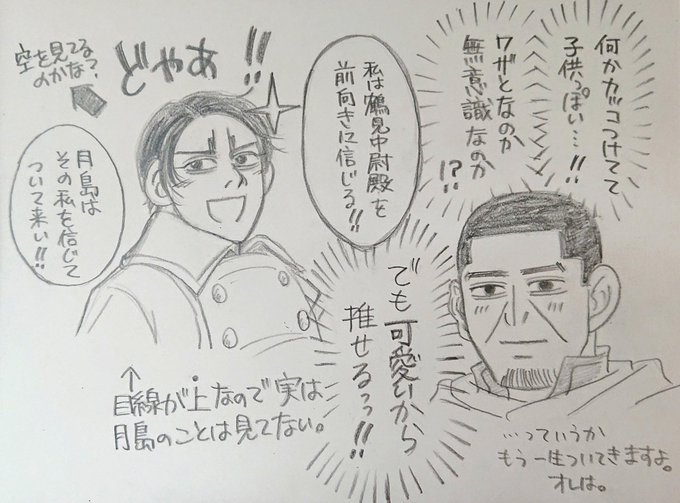 何かカッコつけてて
子供っぽい…!!
ワザとなのか
無意識なのか
!?
私は鶴見中尉殿を
前向きに信じる!!
どやあ!!
空を見てる
のかな?
月島は
その私を信じて
ついて来い!!
でも可愛いから
推せるっっ!!
↑
目線が上なので実は
月島のことは見てない。
…っていうか
もう一生ついてきますよ。
オレは。